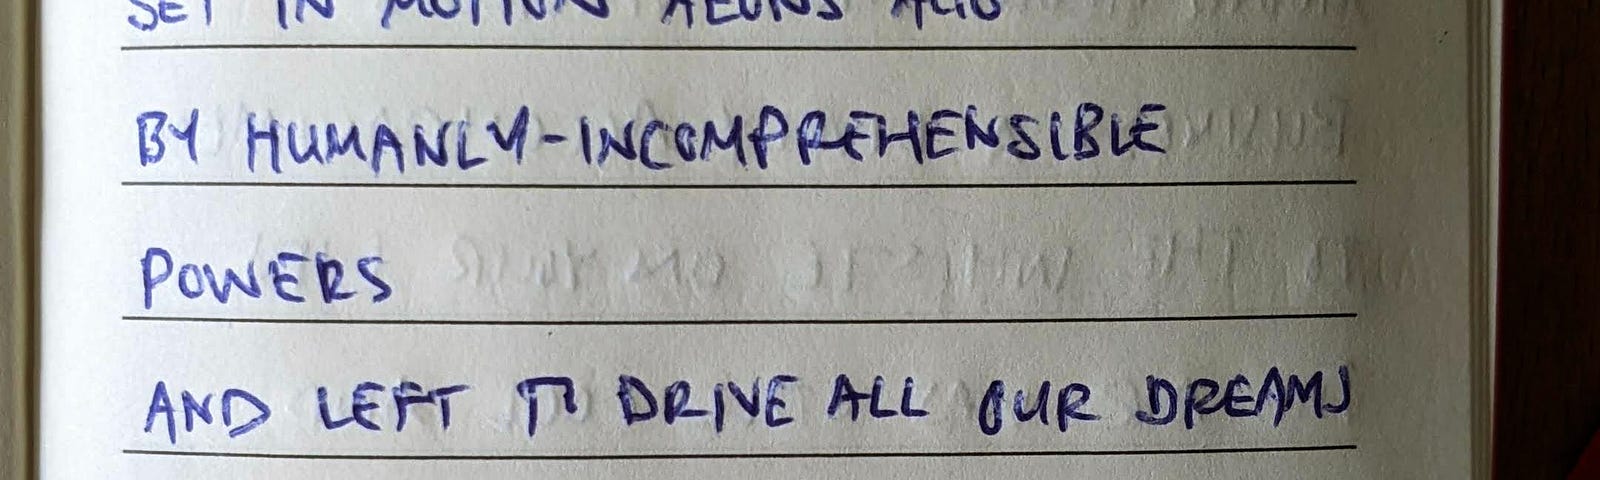 SET IN MOTION AEONS AGO
BY HUMANLY-INCOMPREHENSIBLE
POWERS
AND LEFT TO DRIVE ALL OUR DREAMS